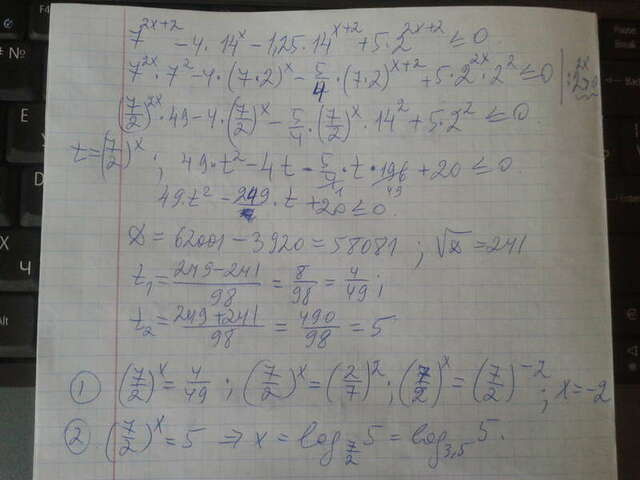 7^{2x+2} - 4 · 14^x - 1,25 · 14^{x+2} + 5 · 2^{2x+2} ≤ 0
7^{2x} · 7^2 - 4 · (7·2)^x - 5/4 · (7·2)^{x+2} + 5 · 2^{2x} · 2^2 ≤ 0 | : 2^{2x}
(7/2)^{2x} · 49 - 4 · (7/2)^x - 5/4 · (7/2)^x · 14^2 + 5 · 2^2 ≤ 0.
t = (7/2)^x ; 49 · t^2 - 4t - 5/4 · t · 196 + 20 ≤ 0.
1 49
49 · t^2 - 249 · t + 20 ≤ 0.
D = 62001 - 3920 = 58081 ; √D = 241
t_1 = (249 - 241)/98 = 8/98 = 4/49 ;
t_2 = (249 + 241)/98 = 490/98 = 5
① (7/2)^x = 4/49 ; (7/2)^x = (2/7)^2 ; (7/2)^x = (7/2)^{-2} ; x = -2
② (7/2)^x = 5 ⇒ x = log_{7/2} 5 = log_{3,5} 5.
№
Е
П
Ч
Alt